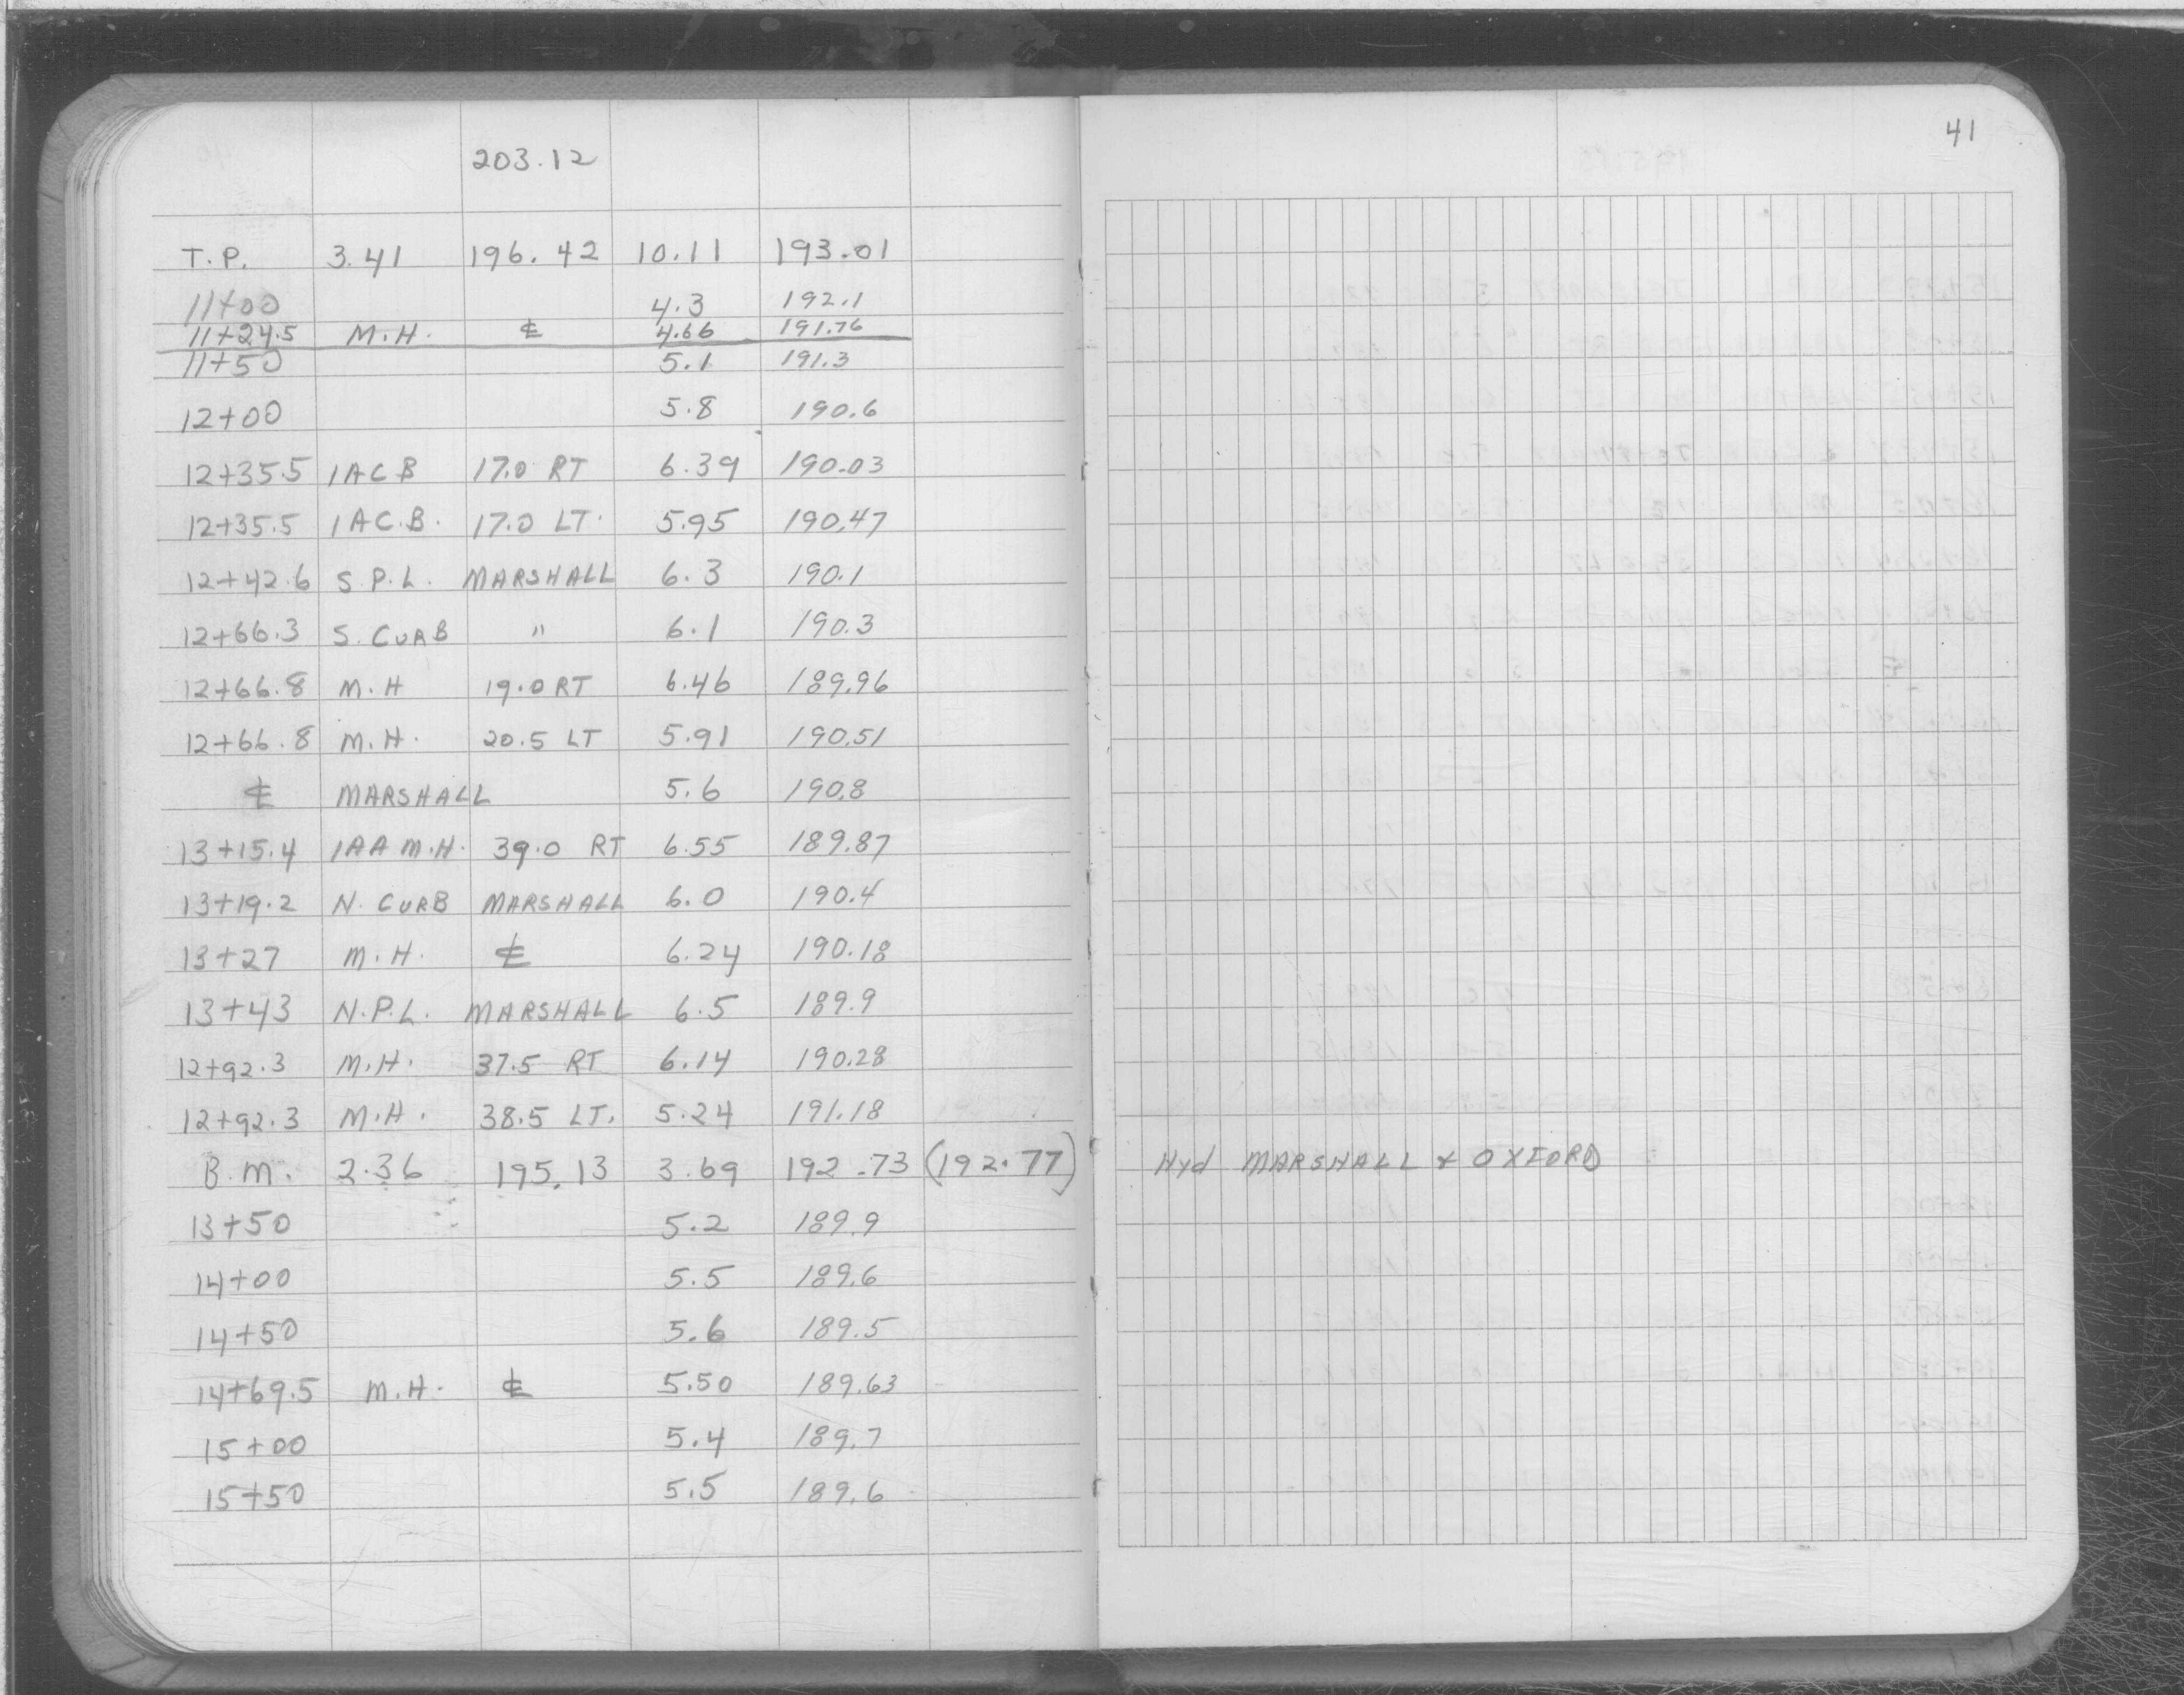 203.12
T.P. 3.41 196.42 10.11 193.01
11+00 4.3 192.1
11+24.5 M.H. ℄ 4.66 191.76
11+50 5.1 191.3
12+00 5.8 190.6
12+35.5 1AC B 17.0 RT 6.39 190.03
12+35.5 1AC.B. 17.0 LT. 5.95 190.47
12+42.6 S.P.L. MARSHALL 6.3 190.1
12+66.3 S. CURB " 6.1 190.3
12+66.8 M.H 19.0 RT 6.46 189.96
12+66.8 M.H. 20.5 LT 5.91 190.51
℄ MARSHALL 5.6 190.8
13+15.4 1AA M.H. 39.0 RT 6.55 189.87
13+19.2 N. CURB MARSHALL 6.0 190.4
13+27 M.H. ℄ 6.24 190.18
13+43 N.P.L. MARSHALL 6.5 189.9
12+92.3 M.H. 37.5 RT 6.14 190.28
12+92.3 M.H. 38.5 LT. 5.24 191.18
B.M. 2.36 195.13 3.69 192.73 (192.77)
13+50 5.2 189.9
14+00 5.5 189.6
14+50 5.6 189.5
14+69.5 M.H. ℄ 5.50 189.63
15+00 5.4 189.7
15+50 5.5 189.6
41
Hyd MARSHALL & OXFORD